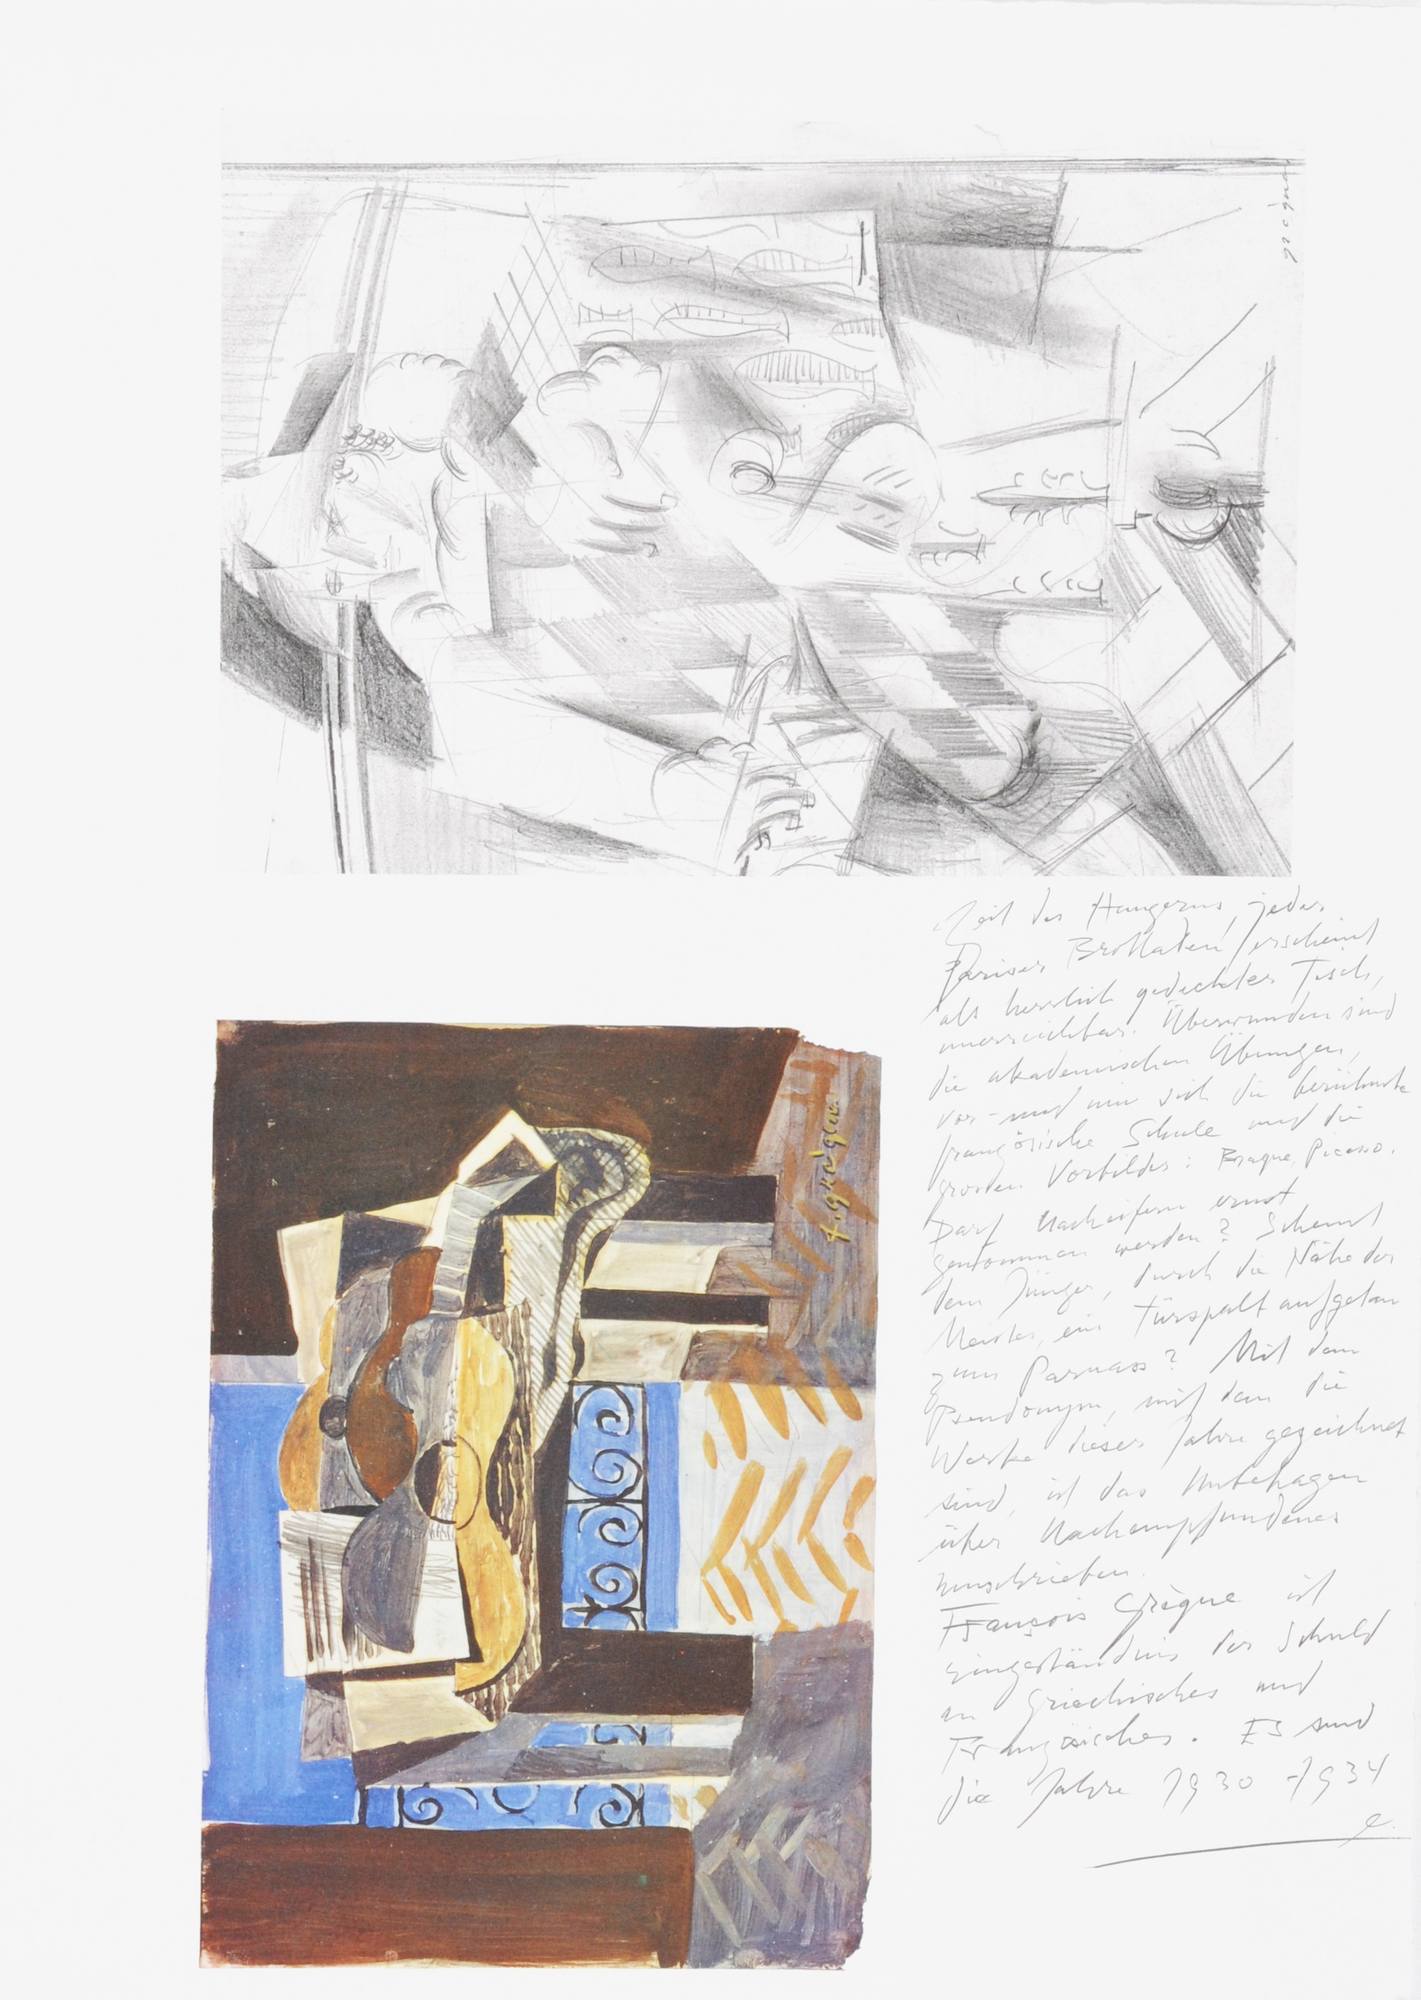 grègue
Zeit des Hungerns, jeder
Pariser Brotladen erscheint
als herrlich gedeckter Tisch,
unerreichbar. Überwunden sind
die akademischen Übungen,
vor- und nun sich die berühmte
französische Schule und die
grossen Vorbilder: Braque, Picasso.
Darf Nacheifern ernst
genommen werden? Scheint
dem Jünger, durch die Nähe der
Meister, ein Türspalt aufgetan
zum Parnass? Mit dem
Pseudonym, mit dem die
Werke dieser Jahre gezeichnet
sind, ist das Unbehagen
über Nachempfundenes
umschrieben.
François Grègue ist
Eingeständnis der Schuld
an Griechisches und
Französisches. Es sind
die Jahre 1930-1934
e.
f. grègue